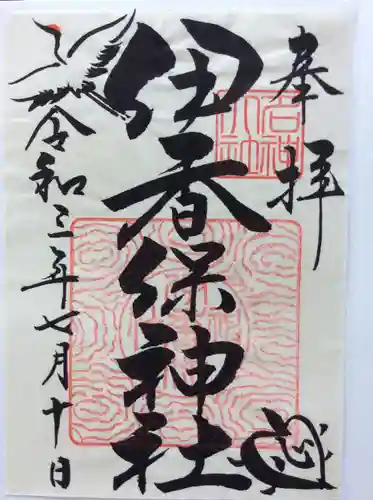 奉拝
伊香保神社
令和三年七月十日